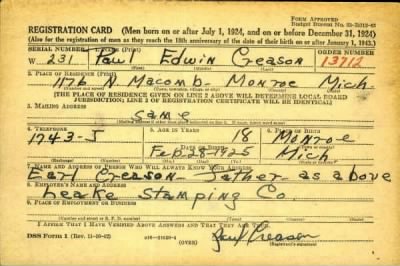 FORM APPROVED
REGISTRATION CARD (Men born on or after July 1, 1924, and on or before December 31, 1924)
(Also for the registration of men as they reach the 18th anniversary of the date of their birth on or after January 1, 1943.)
SERIAL NUMBER
ORDER NUMBER
W 231 Paul Edwin Creason 13712
2. PLACE OF RESIDENCE
1176 N. Macomb- Monroe Mich
[THE PLACE OF RESIDENCE GIVEN ON LINE 2 ABOVE WILL DETERMINE LOCAL BOARD
JURISDICTION; LINE 2 OF REGISTRATION CERTIFICATE WILL BE IDENTICAL]
3. MAILING ADDRESS
same
4. TELEPHONE
5. AGE IN YEARS
6. PLACE OF BIRTH
1743-J
18
Monroe
DATE OF BIRTH
Feb-28-1925
Mich
7. NAME AND ADDRESS OF PERSON WHO WILL ALWAYS KNOW YOUR ADDRESS
Earl Creason- Father- as above
8. EMPLOYER'S NAME AND ADDRESS
Leake Stamping Co.
9. PLACE OF EMPLOYMENT OR BUSINESS
I AFFIRM THAT I HAVE VERIFIED ABOVE ANSWERS AND THAT THEY ARE TRUE.
DSS Form 1
(OVER)
Paul Creason
(Registrant's signature)